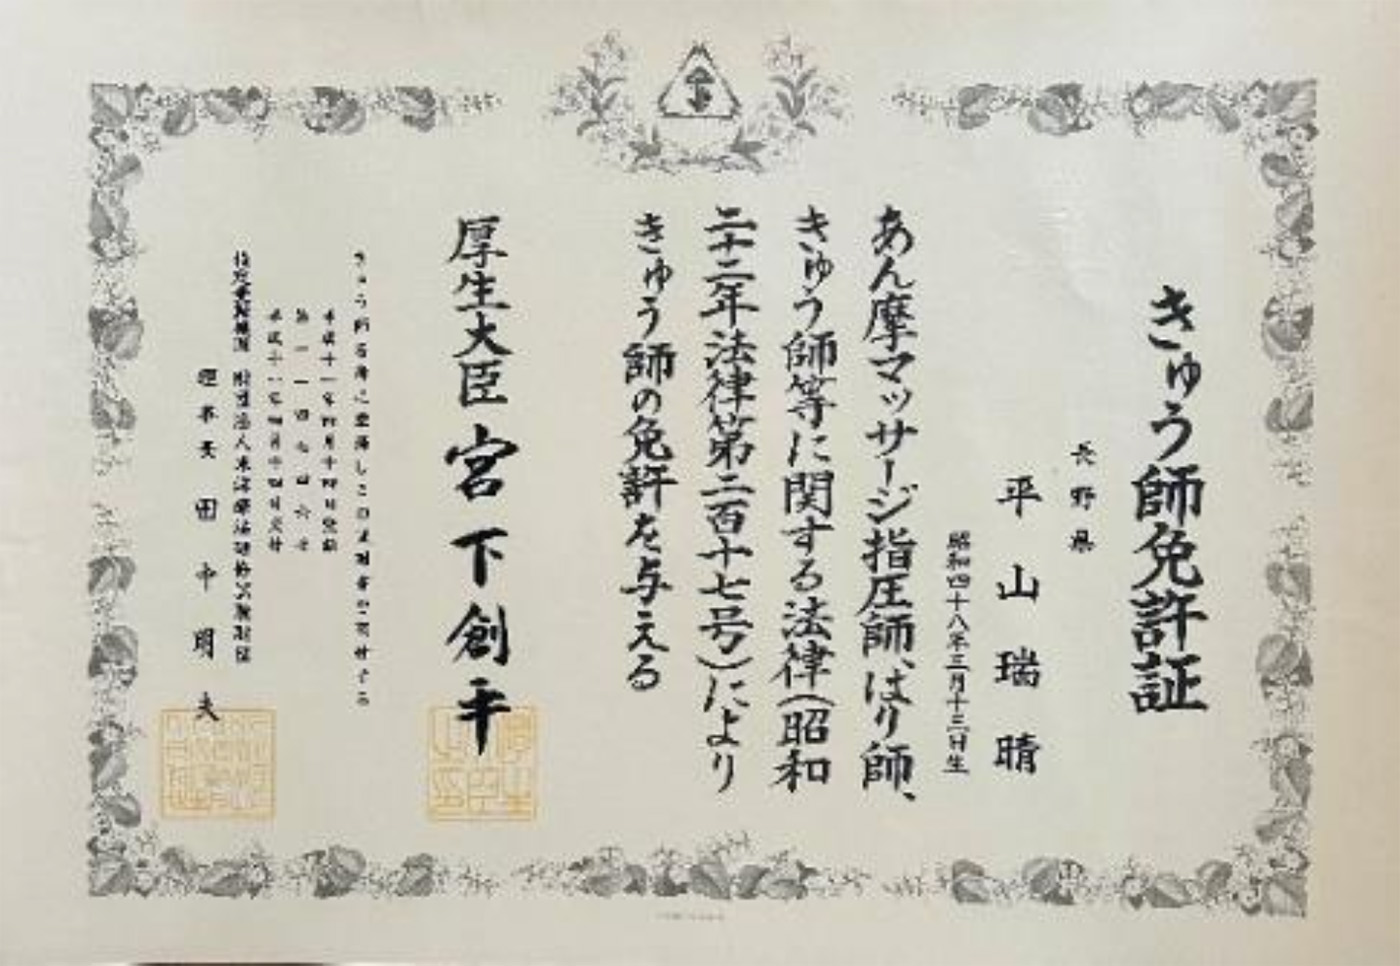 きゅう師免許証
長野県
平山瑞晴
昭和四十八年三月十三日生
あん摩マッサージ指圧師、はり師、
きゅう師等に関する法律(昭和
二十二年法律第二百十七号)により
きゅう師の免許を与える
厚生大臣 宮下創平
きゅう師名簿に登録しこの免許証を交付する
平成十一年四月十四日登録
平成十一年四月十四日交付
理事長 田中明夫